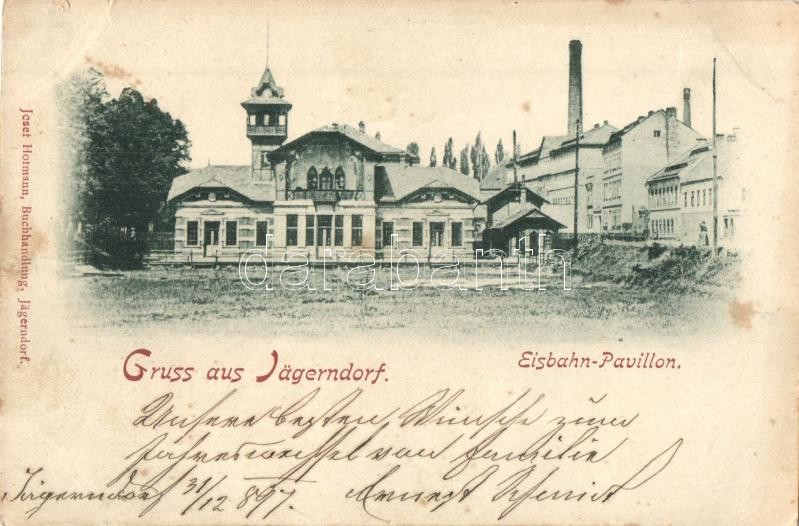 Josef Hofmann, Buchhandlung, Jägerndorf.
darabanth
Gruss aus Jägerndorf.
Eisbahn-Pavillon.
Unsere besten Wünsche zum
Jahreswechsel von Familie
Jägerndorf 31/12 897. Ernest